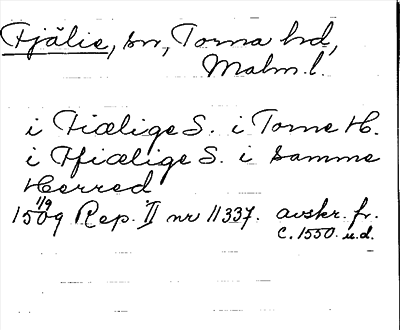 Fjälie, sn, Torna hd,
Malm. l.
i Fiælige S. i Torne H.
i Ffiælige S. i samme
Herred
1509 11/9 Rep. II nr 11337. avskr. fr.
c. 1550. u.d.